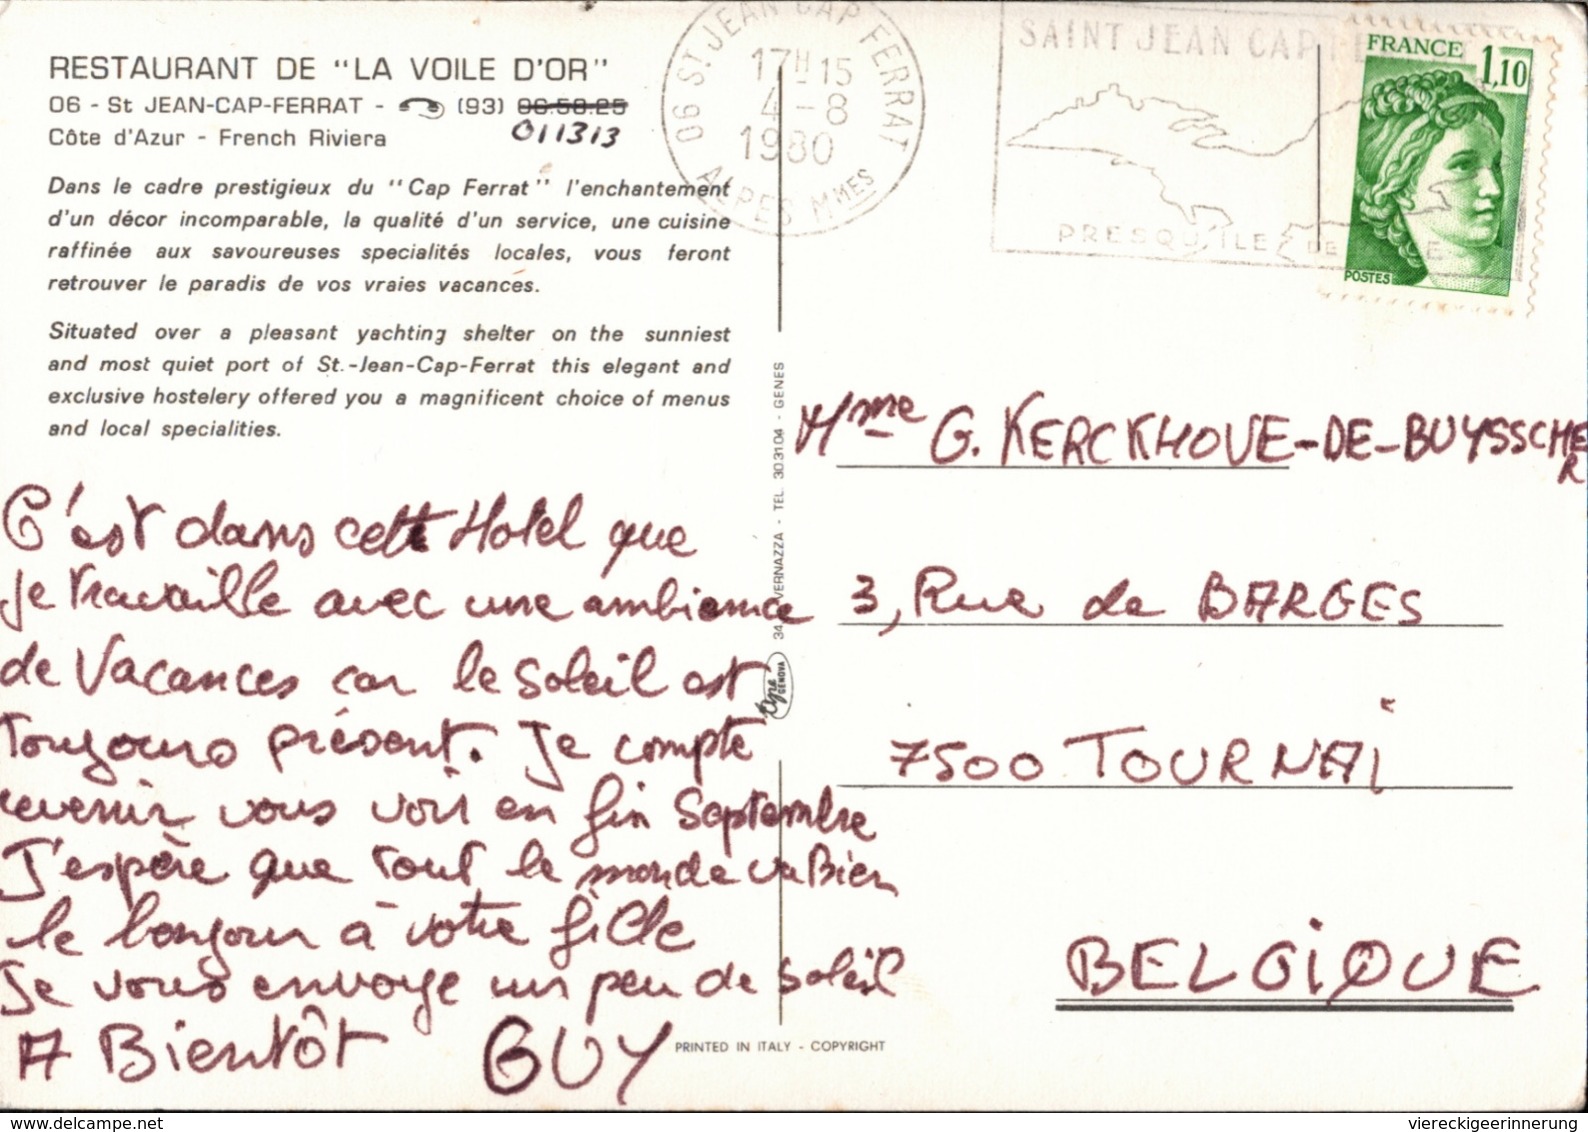 RESTAURANT DE "LA VOILE D'OR"
06 - St JEAN-CAP-FERRAT - (93) 06.58.25
011313
Côte d'Azur - French Riviera
Dans le cadre prestigieux du "Cap Ferrat" l'enchantement
d'un décor incomparable, la qualité d'un service, une cuisine
raffinée aux savoureuses specialités locales, vous feront
retrouver le paradis de vos vraies vacances.
Situated over a pleasant yachting shelter on the sunniest
and most quiet port of St.-Jean-Cap-Ferrat this elegant and
exclusive hostelery offered you a magnificent choice of menus
and local specialities.
C'est dans cette Hotel que
je travaille avec une ambiance
de Vacances car le soleil est
toujours présent. Je compte
revenir vous voir en fin Septembre
J'espère que tout le monde va Bien
le bonjour à votre fille
Je vous envoye un peu de soleil
A Bientôt GUY
06 ST JEAN CAP FERRAT
17H15
4-8
1980
ALPES MMES
SAINT JEAN CAP
PRESQU'ILE DE
FRANCE
1,10
POSTES
34 VERNAZZA - TEL. 303104 - GENES
GENOVA
Mme G. KERCKHOVE-DE-BUYSSCHER
3, Rue de BARGES
7500 TOURNAI
BELGIQUE
PRINTED IN ITALY - COPYRIGHT
viereckigeerinnerung